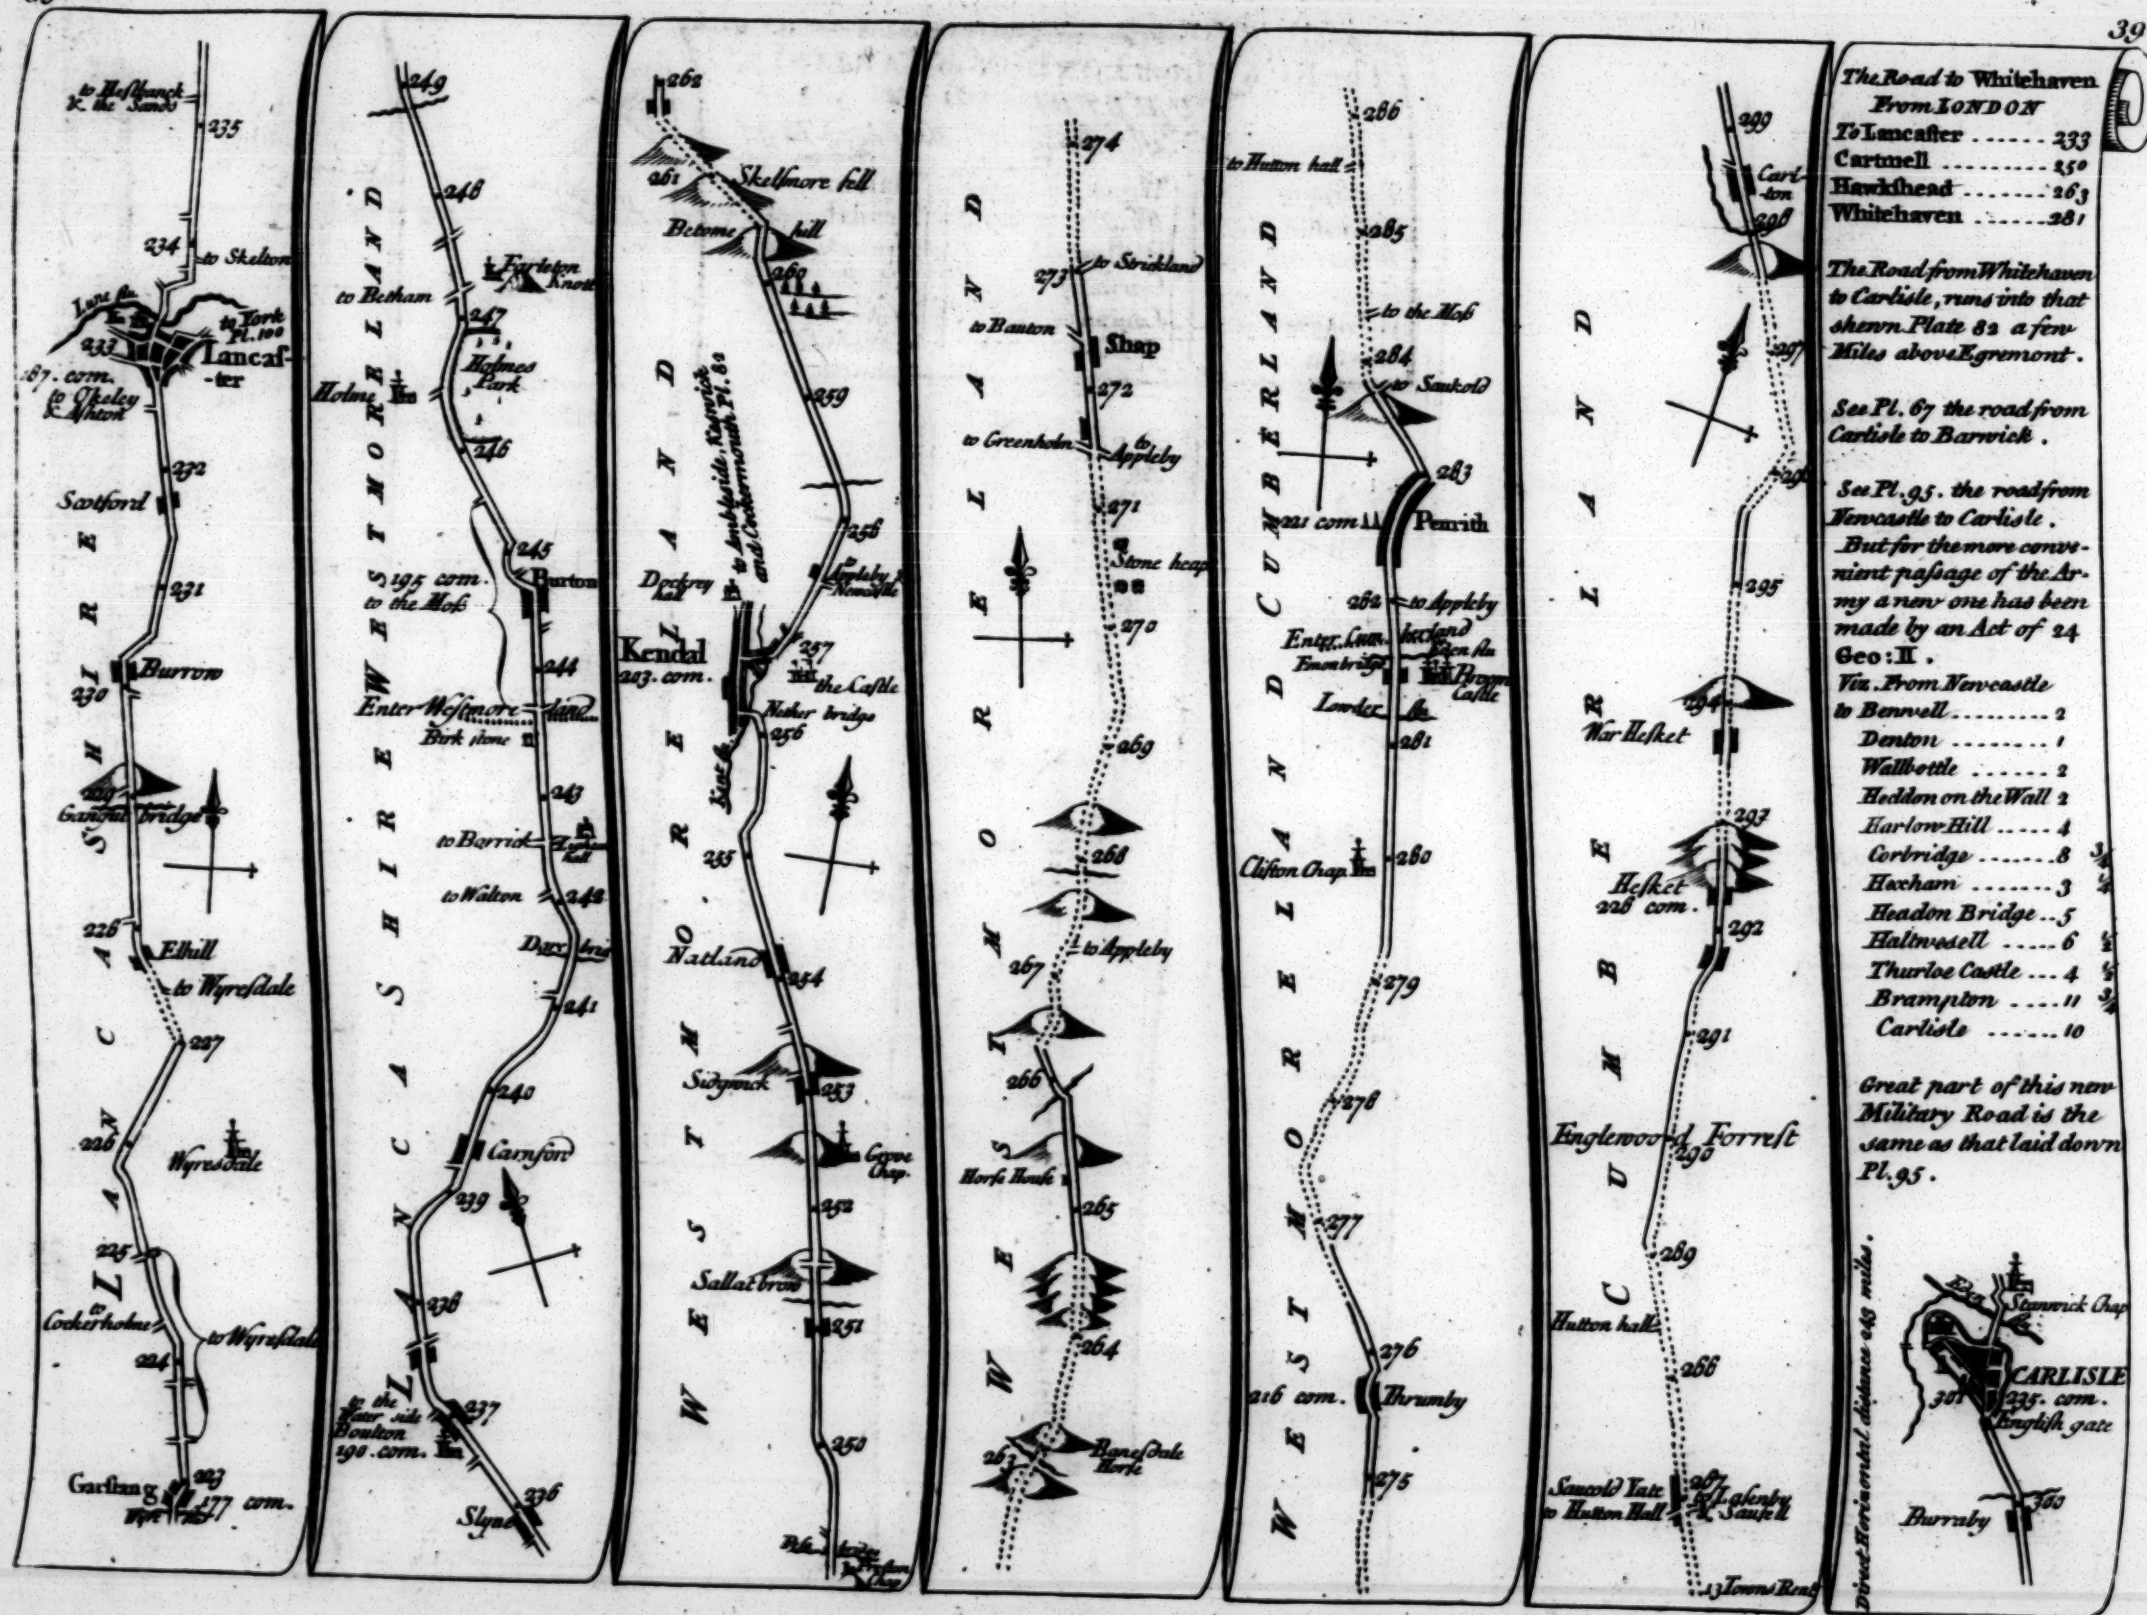 39
to Hestbanck
& the Sands
235
234
to Skelton
Lune flu.
to York
Pl. 100
233
Lancaſ-
-ter
187. com.
to Okeley
& Ashton
232
Scotford
231
Burrow
230
229
Gangut bridge
228
Elhill
to Wyreſdale
227
226
Wyresdale
225
to
Cockerholme
to Wyreſdale
224
223
Garſtang
177 com.
Wyre
LANCASHIRE
249
248
Farleton
Knott
to Betham
247
Holmes
Park
Holme
246
245
195 com.
Burton
to the Moſs
244
Enter Weſtmoreland
Birk stone
243
to Borrick
hall
to Walton
242
241
240
Carnford
239
238
237
to the
Water side
Boulton
190. com.
236
Slyne
LANCASHIRE WESTMORELAND
262
261
Skelſmore fell
Betome hill
260
259
to Ambleside, Keswick
and Cockermouth Pl. 82
258
to
Appleby &
Newcaſtle
Dockrey
hall
Kendal
203. com.
257
the Caſtle
Nether bridge
256
Kint flu.
255
Natland
254
Sidgwick
253
Grove
Chap.
252
Sallat brow
251
250
Preſton
Chap
WESTMORELAND
274
to Strickland
273
to Banton
Shap
272
to Greenholm
to
Appleby
271
Stone heap
270
269
268
to Appleby
267
266
Horſe Houſe
265
264
263
Banesdale
Horſe
WESTMORELAND
286
to Hutton hall
285
to the Moſs
284
to Saukeld
283
221 com
Penrith
282
to Appleby
Enter Cumberland
Eden flu
Emonbridge
Broom
Caſtle
Lowder flu
281
Clifton Chap
280
279
278
277
276
216 com.
Thrumby
275
WESTMORELAND CUMBERLAND
299
Carl-
-ton
298
297
296
295
294
War Heſket
293
Heſket
228 com.
292
291
Englewood Forreſt
290
289
Hutton hall
288
Saucold Yate
287
to Laſenby
to Hutton Hall
13 Towns Rent
CUMBERLAND
The Road to Whitehaven
From LONDON
To Lancaſter ...... 233
Cartmell ........... 250
Hawkſhead ....... 263
Whitehaven ...... 281
The Road from Whitehaven
to Carlisle, runs into that
shewn Plate 82 a few
Miles above Egremont.
See Pl. 67 the road from
Carlisle to Barwick.
See Pl. 95. the road from
Newcastle to Carlisle.
But for the more conve-
nient paſsage of the Ar-
my a new one has been
made by an Act of 24
Geo: II.
Viz. From Newcastle
to Benwell ......... 2
Denton ........ 1
Wallbottle ...... 2
Heddon on the Wall 2
Harlow Hill ..... 4
Corbridge ....... 8 3/4
Hexham ....... 3 1/4
Headon Bridge .. 5
Haltwesell ..... 6 1/2
Thurloe Castle ... 4 1/2
Brampton .... 11 3/4
Carlisle ...... 10
Great part of this new
Military Road is the
same as that laid down
Pl. 95.
Direct Horizontal distance 243 miles.
Eden
Stanwick Chap
CARLISLE
301
235. com.
Engliſh gate
300
Burraby